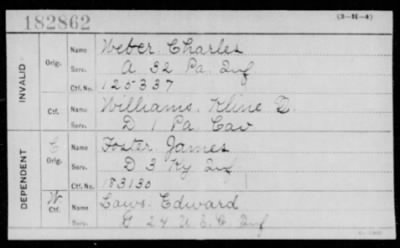 182862 (3-1-4)
INVALID
Orig. Name Weber Charles
Serv. A 32 Pa Inf
Ctf. No. 125337
Ctf. Name Williams, Kline D.
Serv. D 1 Pa Cav
DEPENDENT
C Orig. Name Foster James
Serv. D 3 Ky Inf
Ctf. No. 183130
W Ctf. Name Laws Edward
Serv. G 24 U.S.C. Inf